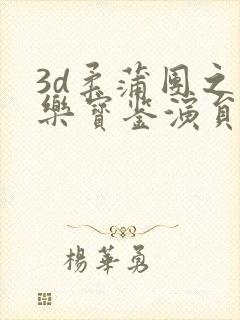 3d柔蒲團之
樂寶鉴演員
楊華勇